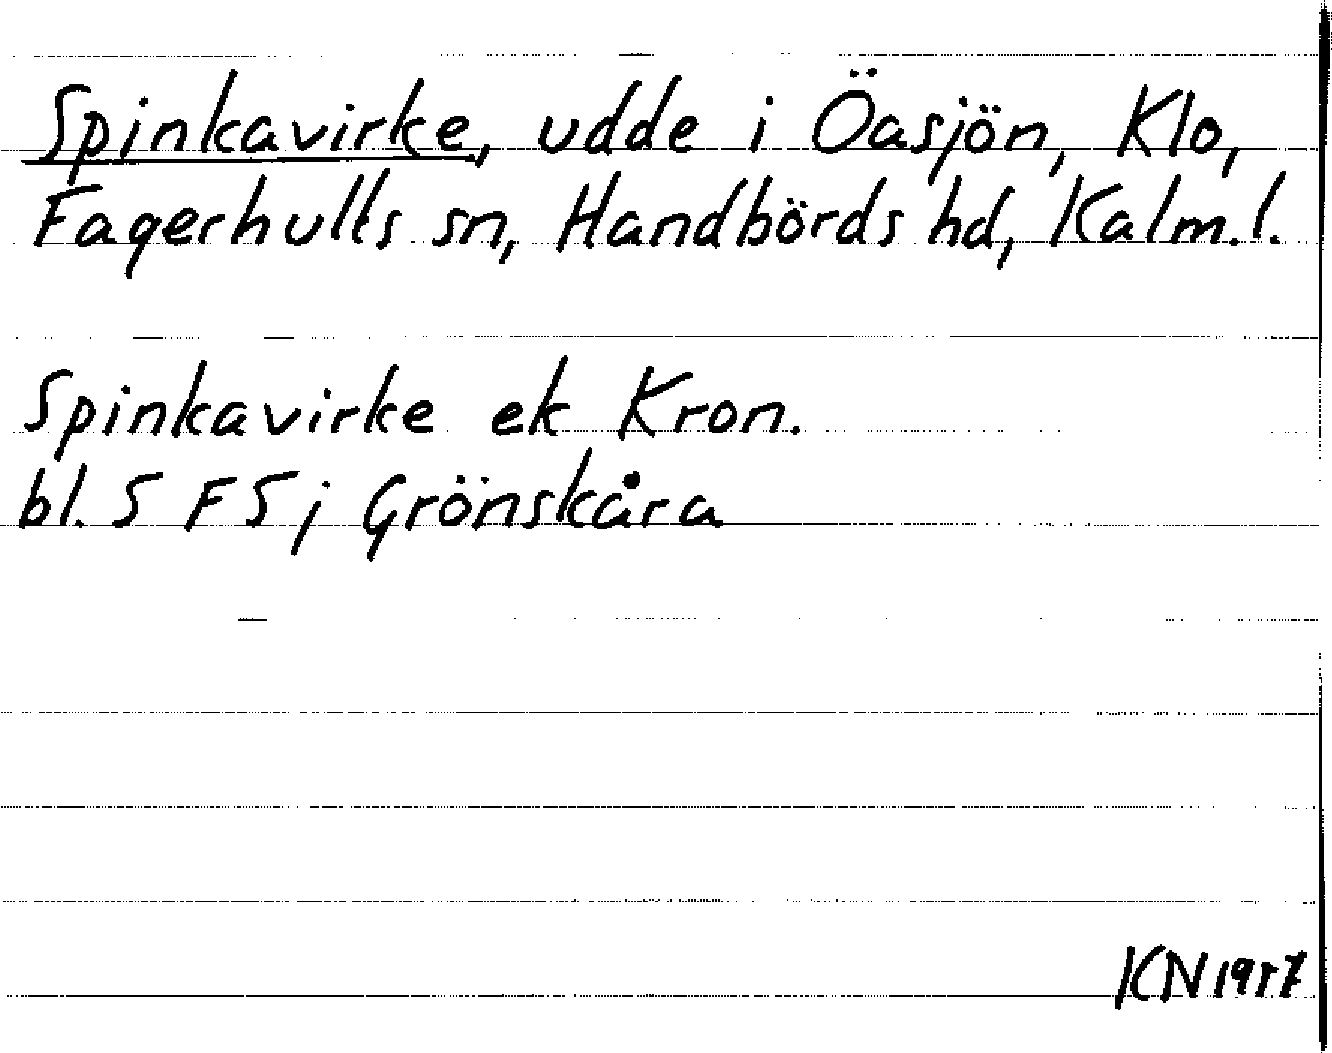 Spinkavirke, udde i Öasjön, Klo,
Fagerhults sn, Handbörds hd, Kalm.l.
Spinkavirke ek Kron.
bl. 5 F 5 i Grönskåra